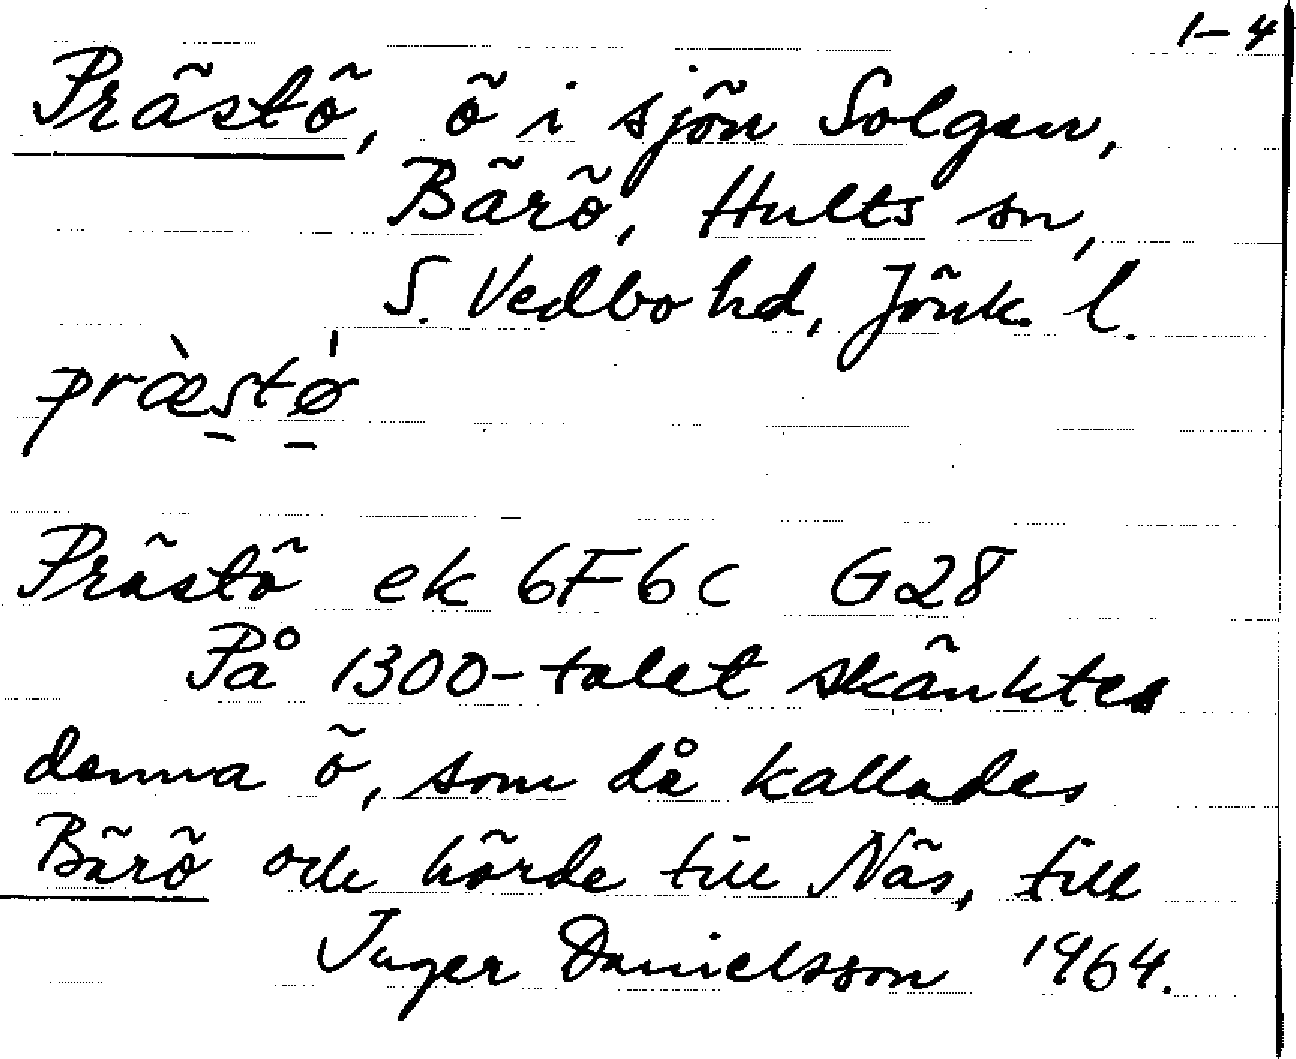 1-4
Prästö, ö i sjön Solgen,
Bärö, Hults sn,
S. Vedbo hd, Jönk. l.
præ̀stø̍
Prästö ek 6F6c G28
På 1300-talet skänktes
denna ö, som då kallades
Bärö och hörde till Näs, till
Inger Danielsson 1964.